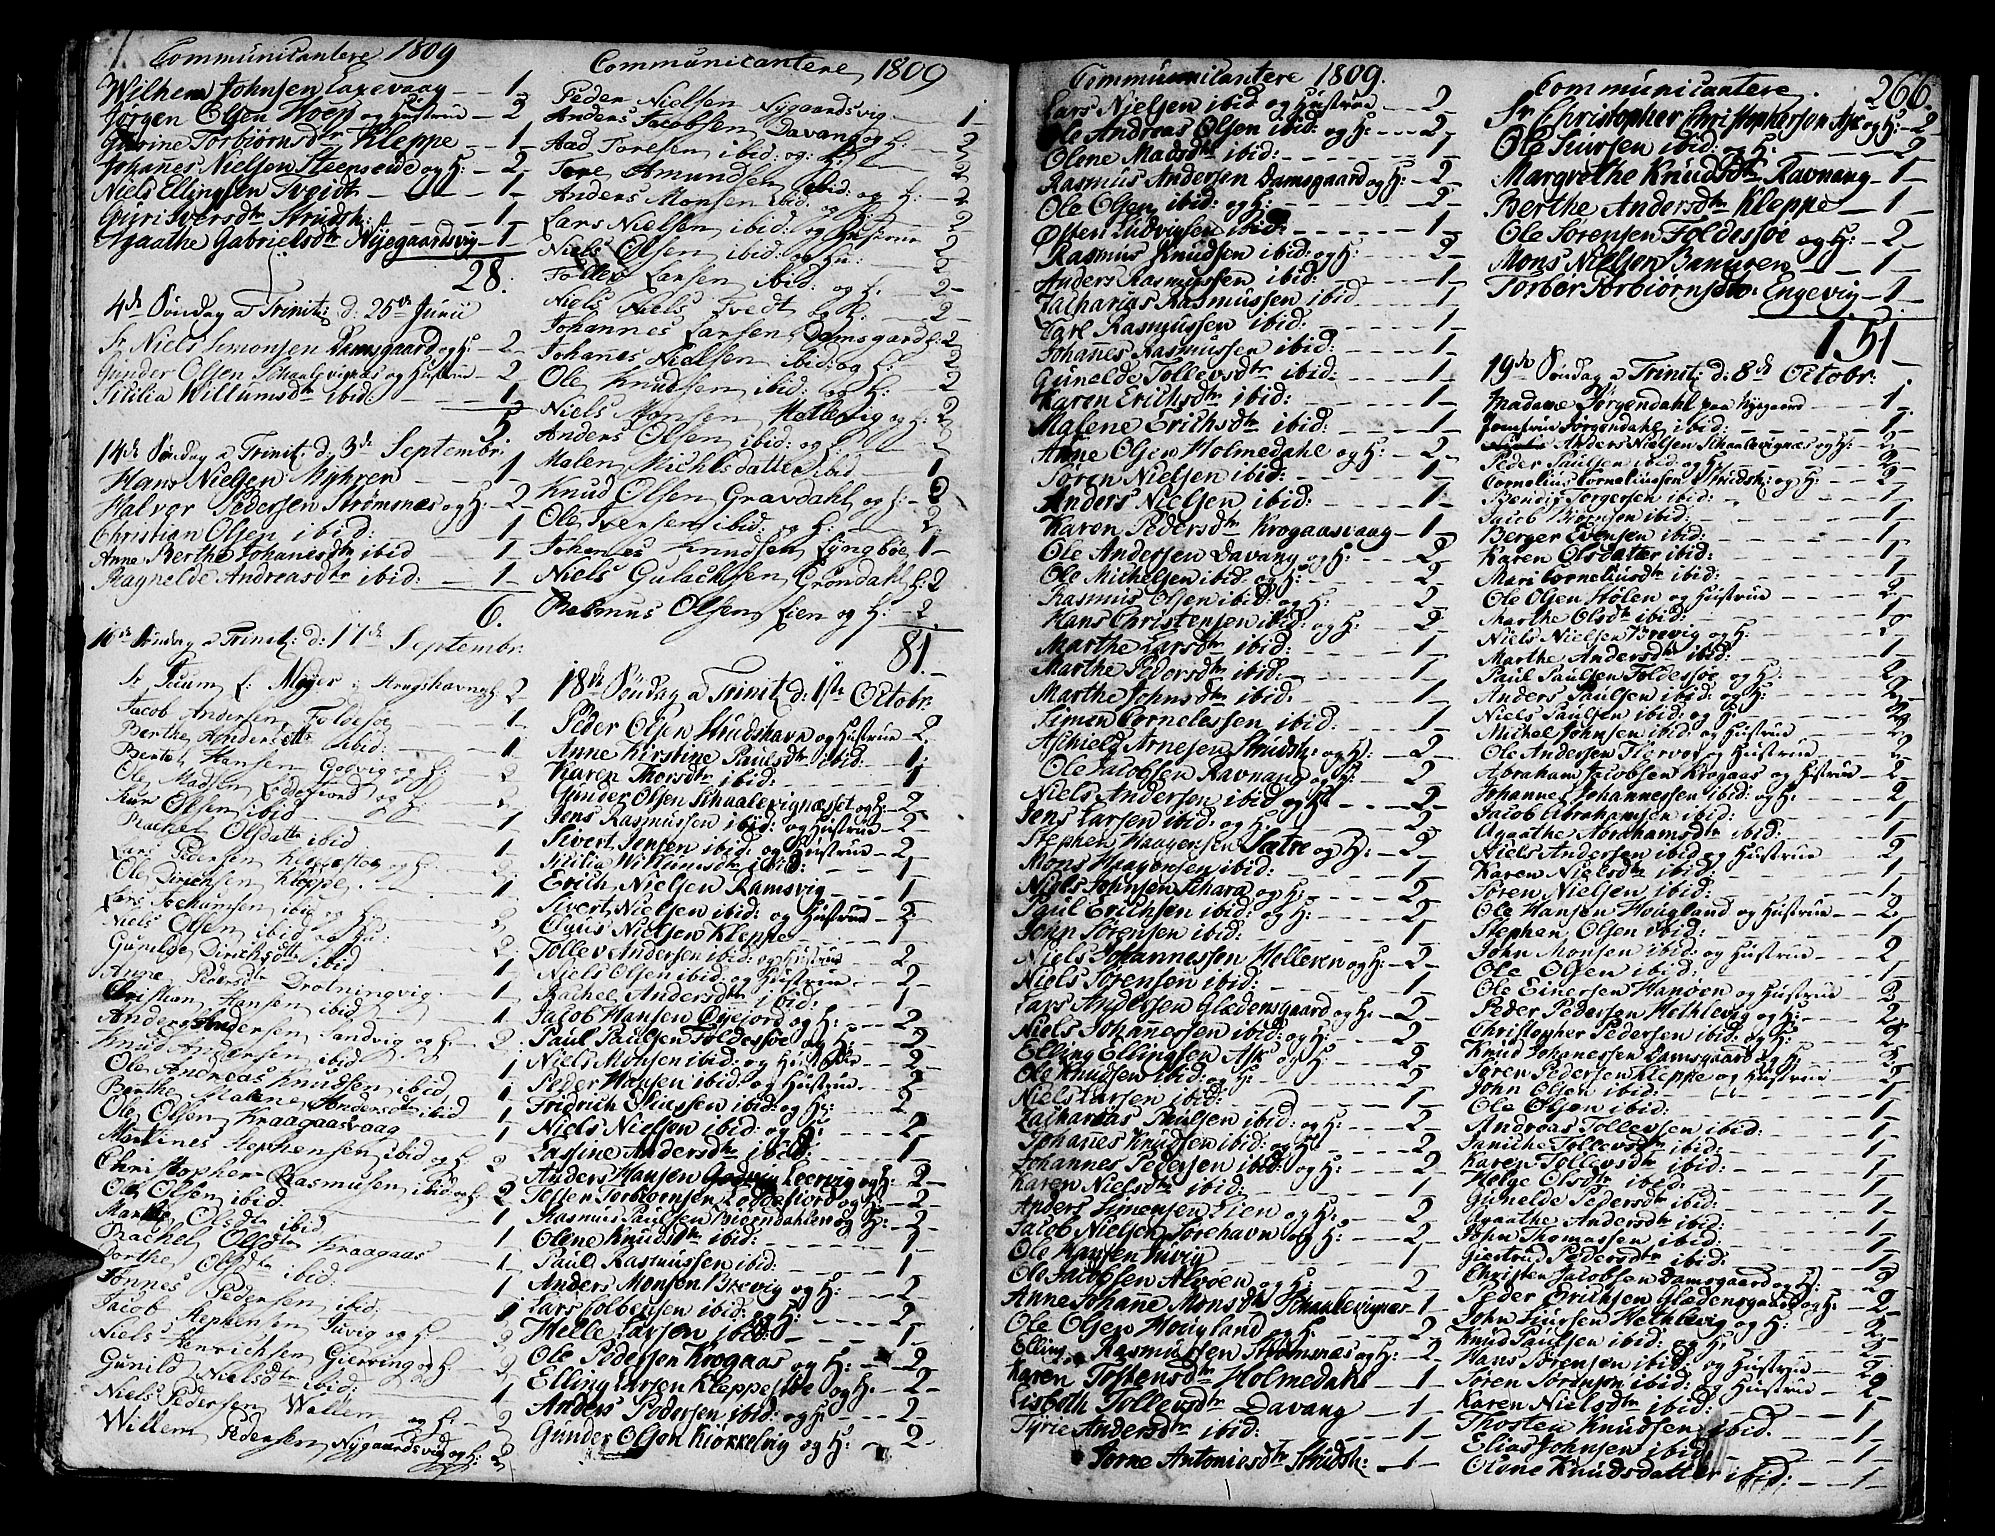 Communicantere 1809
Wilhem Johnsen Laxevaag - 1
Jørgen Olsen Hoess og Hustrue - 2
Gurine Torbiørnsdtr Kleppe - 1
Johañes Nielsen Steensæde og H: - 2
Niels Ellingsen Tveidt - 1
Guri Iversdtr Strudsh: - 1
Agaathe Gabrielsdtr Nyegaardsvig - 1
28.
4de Søndag a Trinit: d: 25de Junii
Sr Niels Simonsen Damsgaard og H: - 2
Gunder Olsen Schaalevignæs og Hustrue - 2
Sicilia Willumsdtr ibid - 1
5
14de Søndag a Trinit: d: 3de Septembr:
Hans Nielsen Myhren - 1
Halvor Pedersen Strømnæs og H: - 2
Christian Olsen ibid: - 1
Anne Berthe Johanesdtr ibid - 1
Ragnelde Andreasdtr ibid: - 1
6.
16de Søndag a Trinit: d: 17de Septembr:
Jacob Andersen Foldesøe - 1
Berthe Andersdtr ibid: - 1
Bertel Hansen Godvig og H: - 2
Ole Madsen Loddefiord og H: - 2
Olsen ibid - 1
Rachel Olsdatter ibid - 1
Lars Pedersen Kleppestøe og H:
Ole Dirichsen Kleppe - 1
Lars Jochumsen ibid og H: - 2
Niels Olsen ibid og Hu: - 2
Gunilde Dirichsdtr ibid - 1
Anne Pedersdtr Drotningvig - 1
Christian Hansen ibid - 1
Anders Andersen Sandvig og H: - 2
Knud Andersen ibid - 1
Ole Andreas Knudsen ibid - 1
Berthe Malene Andersdtr ibid - 1
Ole Olsen Kraagaasvaag - 1
Martines Stephensen ibid og H: - 2
Christopher Rasmusen ibid og H: - 2
Ole Olsen ibid - 1
Marthe Olsdtr ibid - 1
Rachel Olsdtr Kraagaas - 1
Berthe Olsdtr ibid: - 1
Tonnes Pedersen ibid: - 1
Jacob Stephensen Juvig og H: - 2
Niels Henrichsen Gierring og H: - 2
Gunild Nielsdtr ibid: - 1
Niels Pedersen Wallem og H: - 2
Willem Pedersen Nygaardsvig og H: - 2
Communicantere 1809
Peder Nielsen Nygaardsvig - 1
Anders Jacobsen Davang og H: - 2
Aad Toresen ibid: og: H: - 2
Tore Amundsen ibid: og H: - 2
Anders Monsen ibid: og H: - 2
Lars Nielsen ibid: og Hustrue - 2
Niels Olsen ibid: og Hu: - 2
Tollev Larsen ibid: og H: - 2
Niels Niels Tvedt og H: - 2
Johannes Larsen Damsgard og H: - 2
Johanes Nielsen ibid: og H: - 2
Ole Knudsen ibid: og H: - 2
Niels Monsen Hetlevig og H: - 2
Anders Olsen ibid: og H: - 2
Malen Michelsdatter ibid - 1
Knud Olsen Gravdahl og H: - 2
Ole Iversen ibid: og H: - 2
Johannes Knudsen Lyngbøe - 1
Niels Gulachsen Grøndahl og H: 2
Rasmus Olsen Lien og H: - 2.
81.
18de Søndag a Trinit: d: 1ste Octobr:
Peder Olsen Strudshavn og Hustrue 2
Anne Kirstine Paulsdtr ibid: - 1
Karen Thorsdtr ibid: - 1
Gunder Olsen Schaalevignæset og H: - 2
Jens Rasmussen ibid: og Hustrue - 2
Sivert Jensen ibid: og Hustrue - 2
Sicilia Willumsdtr ibid: - 1
Erich Nielsen Ramsvig - 1
Sivert Nielsen ibid: og Hustrue 2
Claus Nielsen Kleppe - 1
Tollev Andersen ibid: og Hustrue - 2
Niels Olsen ibid: og Hustrue - 2
Rachel Andersdtr ibid: - 1
Jacob Hansen Øyejord og H: - 2
Paul Paulsen Foldessøe og H: - 2
Niels Monsen ibid: og Hustrue - 2
Peder Hansen ibid: og Hustrue - 2
Fridrich Clausen ibid: og H: - 2
Niels Nielsen ibid: og H: - 2
Lasine Andersdtr ibid: - 1
Anders Hansen Leervig og H: - 2
Tosten Torbiørnsen Loddefiord og H: - 2
Rasmus Paulsen Biørndahlen og H: - 2
Olene Knudsdtr ibid: - 1
Paul Rasmussen ibid: - 1
Anders Monsen Brevig og H: - 2
Lars Solbersen ibid: og H: - 2
Helle Larsen ibid: - 1
Ole Pedersen Krogaas og H: - 2
Elling Larsen Kleppestøe og H: - 2
Anders Pedersen ibid: og H: - 2
Gunder Olsen Kiøkkelvig og H: - 2
Communicantere 1809.
Lars Nielsen ibid og Hustrue - 2
Ole Andreas Olsen ibid: og H: - 2
Olene Madsdtr ibid: - 1
Rasmus Andersen Damsgaard og H: - 2
Ole Olsen ibid: og H: - 2
Østen Ludvigsen ibid: - 1
Rasmus Knudsen ibid: og H: - 2
Anders Rasmussen ibid: - 1
Zacharias Rasmussen ibid - 1
Carl Rasmussen ibid: - 1
Johañes Rasmussen ibid: - 1
Gunelde Tollevsdtr ibid: - 1
Karen Erichsdtr ibid: - 1
Malene Erichsdtr ibid: - 1
Arne Olsen Holmedahl og H: - 2
Søren Nielsen ibid: - 1
Anders Nielsen ibid: - 1
Karen Pedersdtr Krogaasvaag - 1
Ole Andersen Davang og H: - 2
Ole Michelsen ibid: og H: - 2
Rasmus Olsen ibid: og H: - 2
Hans Christensen ibid: og H: - 2
Marthe Larsdtr ibid: - 1
Marthe Pedersdtr ibid: - 1
Marthe Johnsdtr ibid: - 1
Simon Cornelessen ibid: - 1
Aschield Arnesen Strudsh: og H: - 2
Ole Jacobsen Ravnang og H: - 2
Niels Andersen ibid og H: - 2
Jens Larsen ibid: og H: - 2
Stephen Haagensen Sætre og H: - 2
Mons Haagensen ibid:
Niels Johnsen Schara og H: - 2
Paul Erichsen ibid: og H: - 2
John Sørensen ibid: - 1
Niels Johannessen Holleren og H: - 2
Niels Sørensen ibid: - 1
Lars Andersen Glædensgaard og H: - 2
Niels Johannessen ibid: og H: - 2
Elling Ellingsen Ask og H: - 2
Ole Knudsen ibid: og H: - 2
Niels Larsen ibid: - 1
Zacharias Paulsen ibid: og H: - 2
Johañes Knudsen ibid: og H: - 2
Johannes Pedersen ibid: og H: - 2
Karen Nielsdtr ibid: - 1
Anders Simensen Lien og H: - 2
Jacob Nielsen Sørehavn og H: - 2
Ole Hansen Juvig - 1
Ole Jacobsen Alvøen og H: - 2
Anne Johañe Monsdtr Schaalevignæs - 1
Ole Olsen Hougland og H: - 2
Elling Rasmussen Strømnæs og H: - 2
Karen Tostensdtr Holmedahl - 1
Lisbeth Tollevsdtr Davang - 1
Tyrie Andersdtr ibid: - 1
Sørne Antonisdtr Strudsh: - 1
Communicantere. 266.
Sr Christopher Christophersen Ask og H: - 2
Ole Siursen ibid: og H: - 2
Margrethe Knudsdtr Ravnang - 1
Berthe Andersdtr Kleppe - 1
Ole Sørensen Foldessøe og H: - 2
Mons Nielsen Banueren - 1
Torber Torbiørnsdtr Engevig - 1
151
19de Søndag a Trinit: d: 8de Octobr:
Madame Jørgendahl paa Nyegaard - 1
Jomfrue Jørgendahl ibid: - 1
Anders Nielsen Schaalevignæs og H: - 2
Peder Paulsen ibid og H: - 2
Cornelius Corneliussen Strudsh: og H: - 2
Bendix Jørgersen ibid: - 1
Jacob Biørnsen ibid: - 1
Berger Evensen ibid: - 1
Karen Olsdatter ibid: - 1
Mari Corneliusdtr ibid: - 1
Ole Olsen Hølen og Hustrue - 2
Marthe Olsdtr ibid: - 1
Niels Nielsen Brevig og H: - 2
Marthe Andersdtr ibid: - 1
Paul Paulsen Foldessøe og H: - 2
Anders Paulsen ibid: og H: - 2
Niels Paulsen ibid: og H: - 2
Michel Johnsen ibid: og Hustrue - 2
Ole Andersen Tiervog og Hustrue - 2
Abraham Jacobsen Krogaas og Hustrue - 2
Johannes Johannessen ibid: og H: - 2
Jacob Abrahamsen ibid: - 1
Agaathe Abrahamsdtr ibid: - 1
Niels Andersen ibid og Hustrue - 2
Karen Nielsdtr ibid: - 1
Søren Nielsen ibid: - 1
Ole Hansen Hougland og Hustrue - 2
Stephen Olsen ibid: - 1
John Monsen ibid: og Hustrue - 2
Ole Olsen ibid: - 1
Ole Einersen Hanøen og Hustrue - 2
Peder Pedersen Hethlevig og H: - 2
Christopher Pedersen ibid: og H: - 2
Knud Johanessen Damsgaard og H: - 2
Søren Pedersen Kleppe og Hustrue - 2
John Olsen ibid: - 1
Ole Olsen ibid: - 1
Andreas Tollevsen ibid: - 1
Saniche Tollevsdtr ibid: - 1
Karen Tollevsdtr ibid: - 1
Helge Olsdtr ibid: - 1
Gunelde Pedersdtr ibid: - 1
Agaathe Andersdtr ibid: - 1
John Thomassen ibid: - 1
Giertrud Pedersdtr ibid: - 1
Christen Jacobsen Damsgaard og H: - 2
Peder Erichsen Glædensgaard og H: - 2
John Siursen Hethlevig og H: - 2
Knud Paulsen ibid: og H: - 2
Hans Sørensen ibid: og Hustrue - 2
Søren Sørensen ibid: og Hustrue - 2
Karen Nielsdtr ibid: - 1
Thosten Knudsen ibid. - 1
Elias Johnsen ibid: - 1
Olene Knudsdatter ibid: - 1